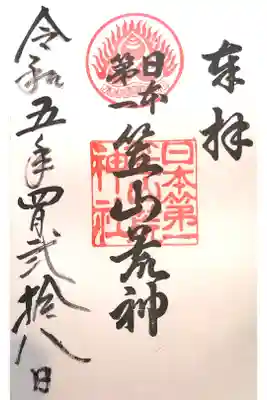 奉拝
日本
第一
笠山荒神
日本第一
神社
令和五年四月弐拾八日